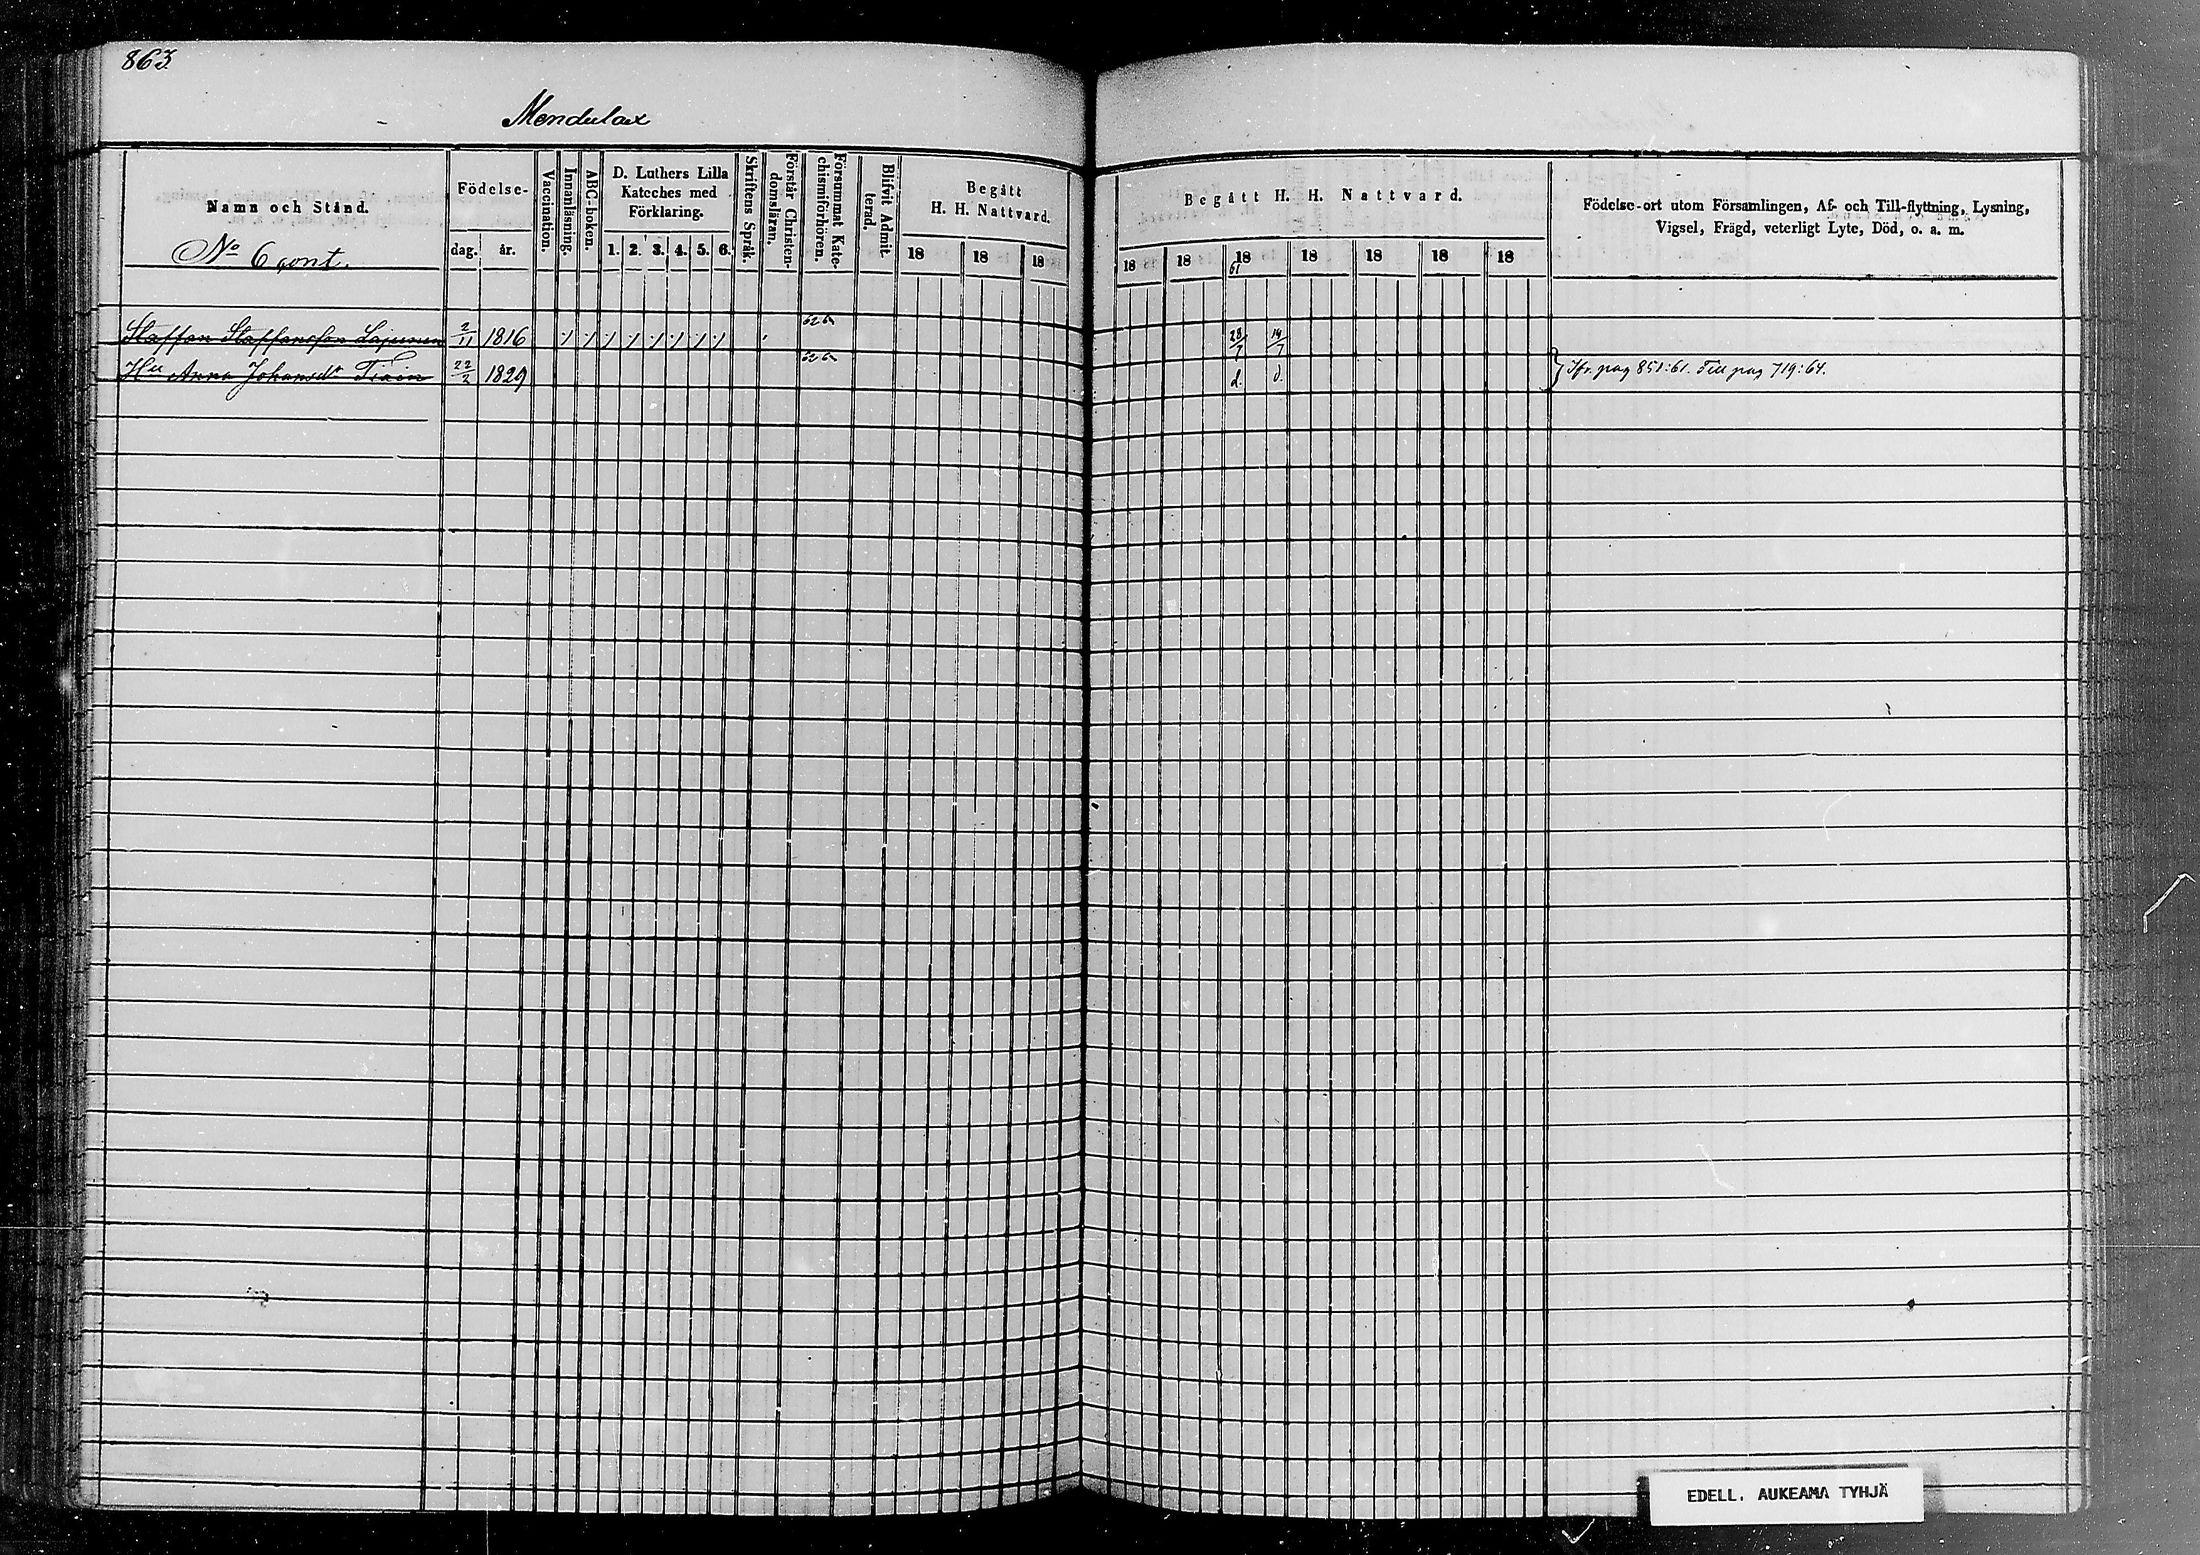 863
Mendulax
Namn och Stånd.
No 6 cont.
Födelse-
dag. år.
Vaccination.
Innanläsning.
ABC-boken.
D. Luthers Lilla
Kateches med
Förklaring.
1. 2. 3. 4. 5. 6.
Skriftens Språk.
Förstår Christen-
domsläran.
Försummat Kate-
chismiförhören.
Blifvit Admit-
terad.
Begått
H. H. Nattvard.
18 18 18
Begått H. H. Nattvard.
18 18 18 18 18 18 18
61
Födelse-ort utom Församlingen, Af- och Till-flyttning, Lysning,
Vigsel, Frägd, veterligt Lyte, Död, o. a. m.
Staffan Staffansson Lajunen 2/11 1816 28/7 14/7
Hu Anna Johansdr 22/2 1829 d. d.
Ifr. pag 851:61. Till pag 719:64.
EDELL. AUKEAMA TYHJÄ